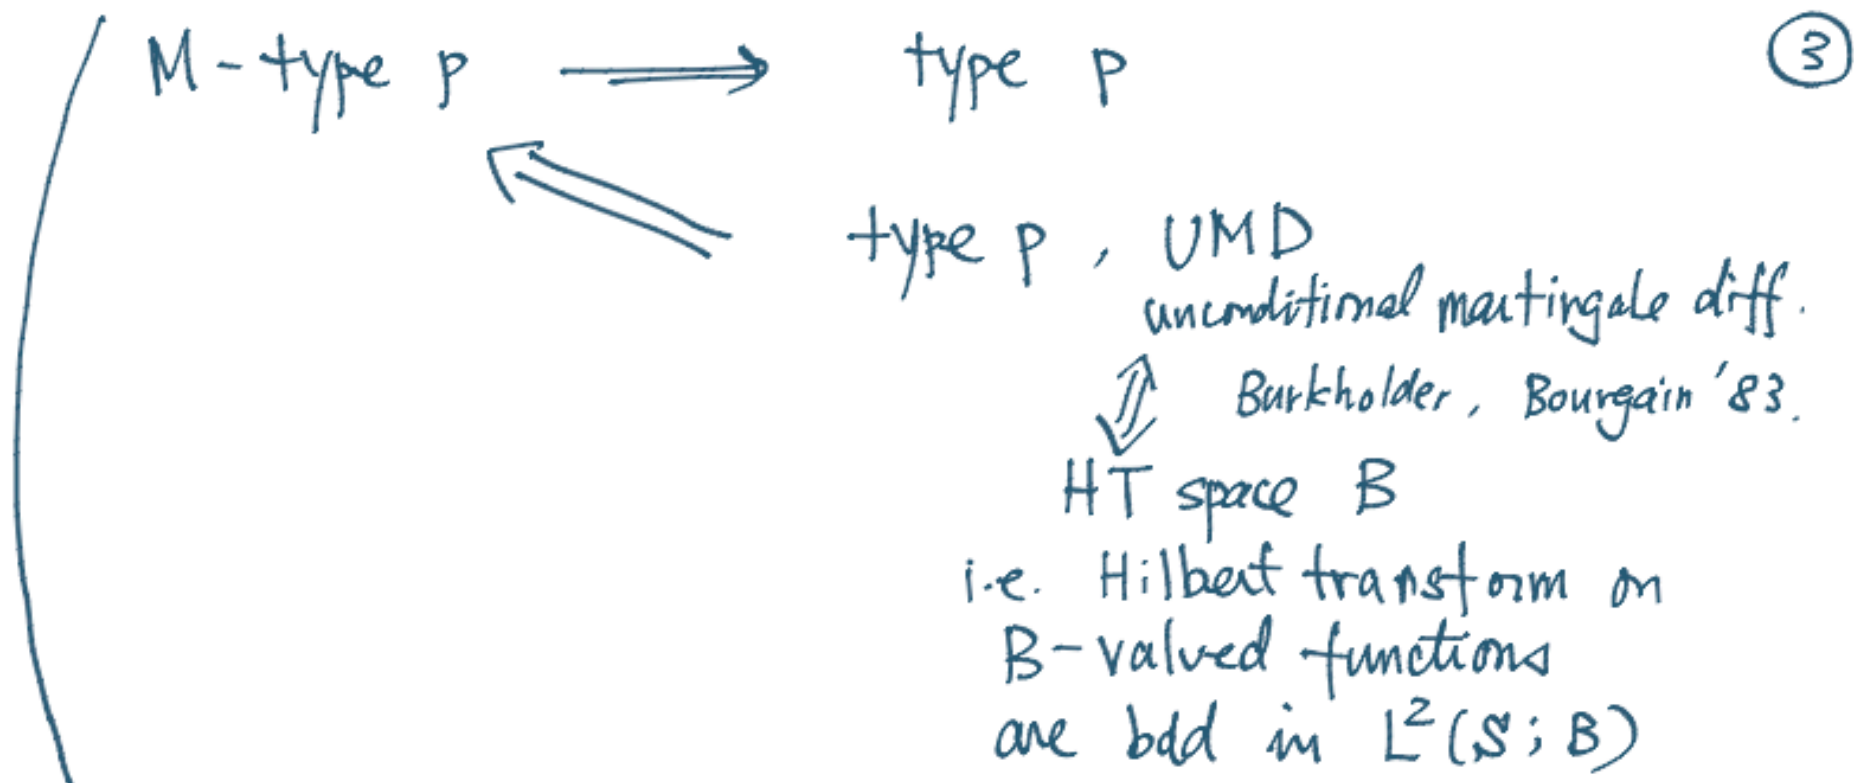 M-type p ⟹ type p ③
⟸ type p, UMD
unconditional martingale diff.
⇕ Burkholder, Bourgain '83.
HT space B
i.e. Hilbert transform on
B-valued functions
are bdd in L²(S; B)